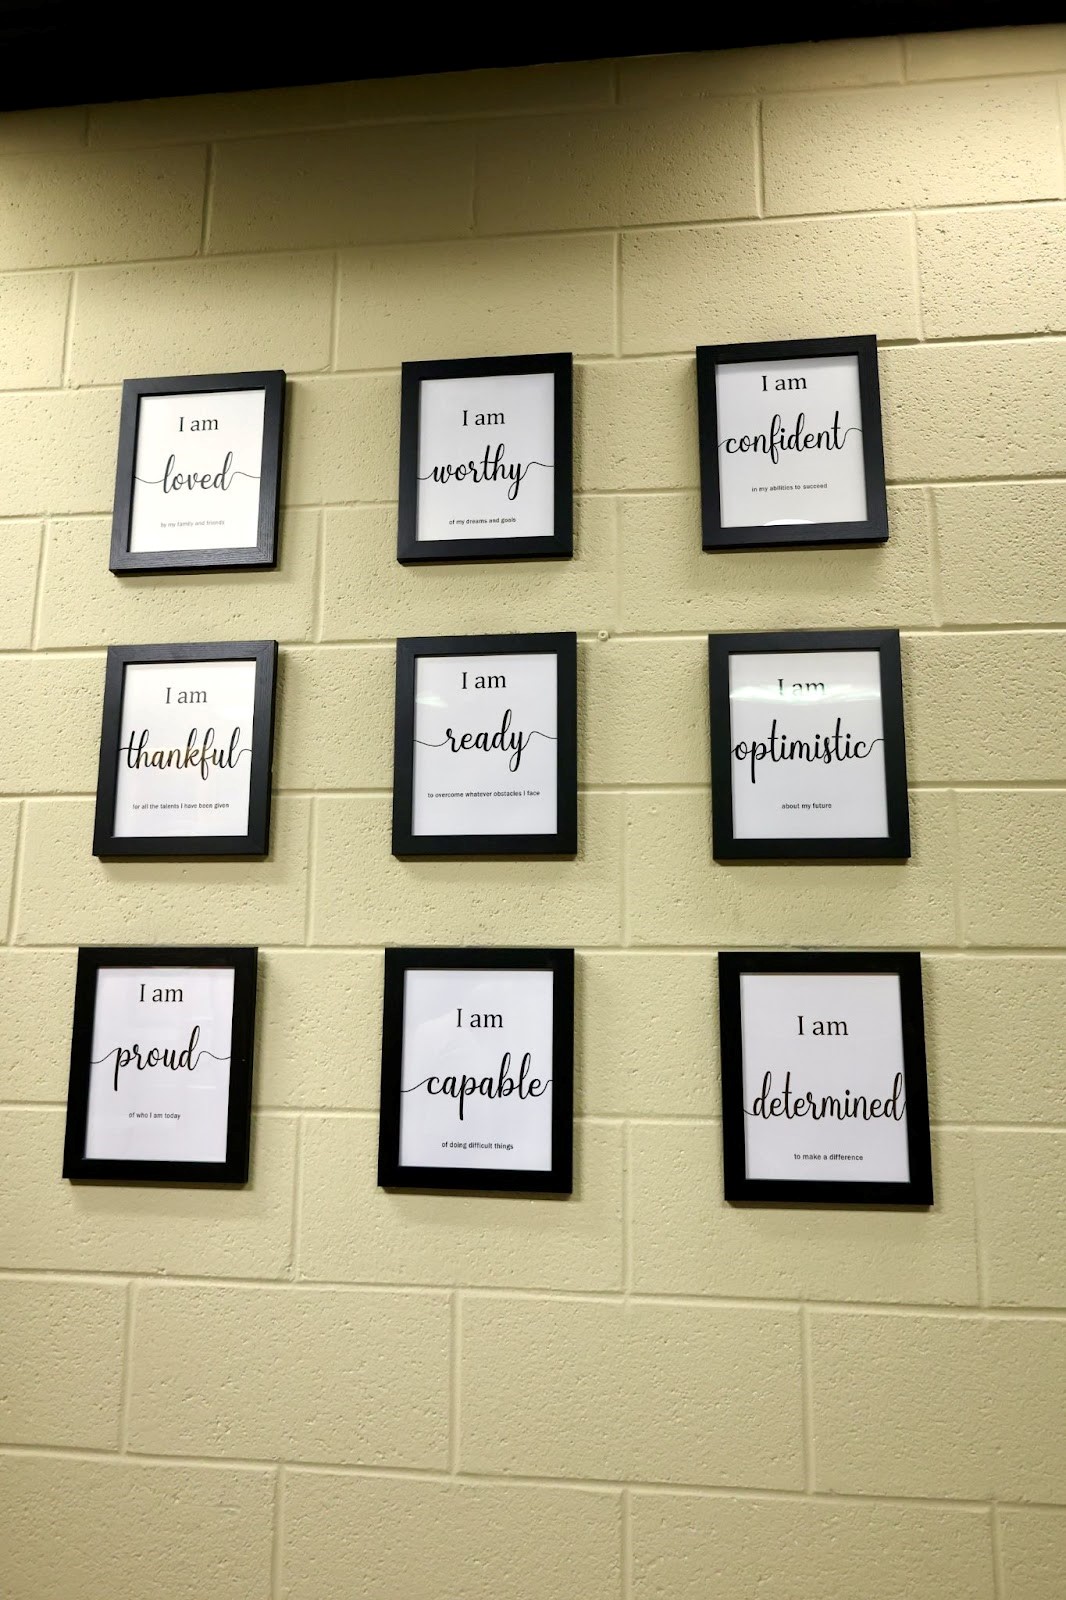 I am
loved
by my family and friends
I am
worthy
of my dreams and goals
I am
confident
in my abilities to succeed
I am
thankful
for all the talents I have been given
I am
ready
to overcome whatever obstacles I face
I am
optimistic
about my future
I am
proud
of who I am today
I am
capable
of doing difficult things
I am
determined
to make a difference